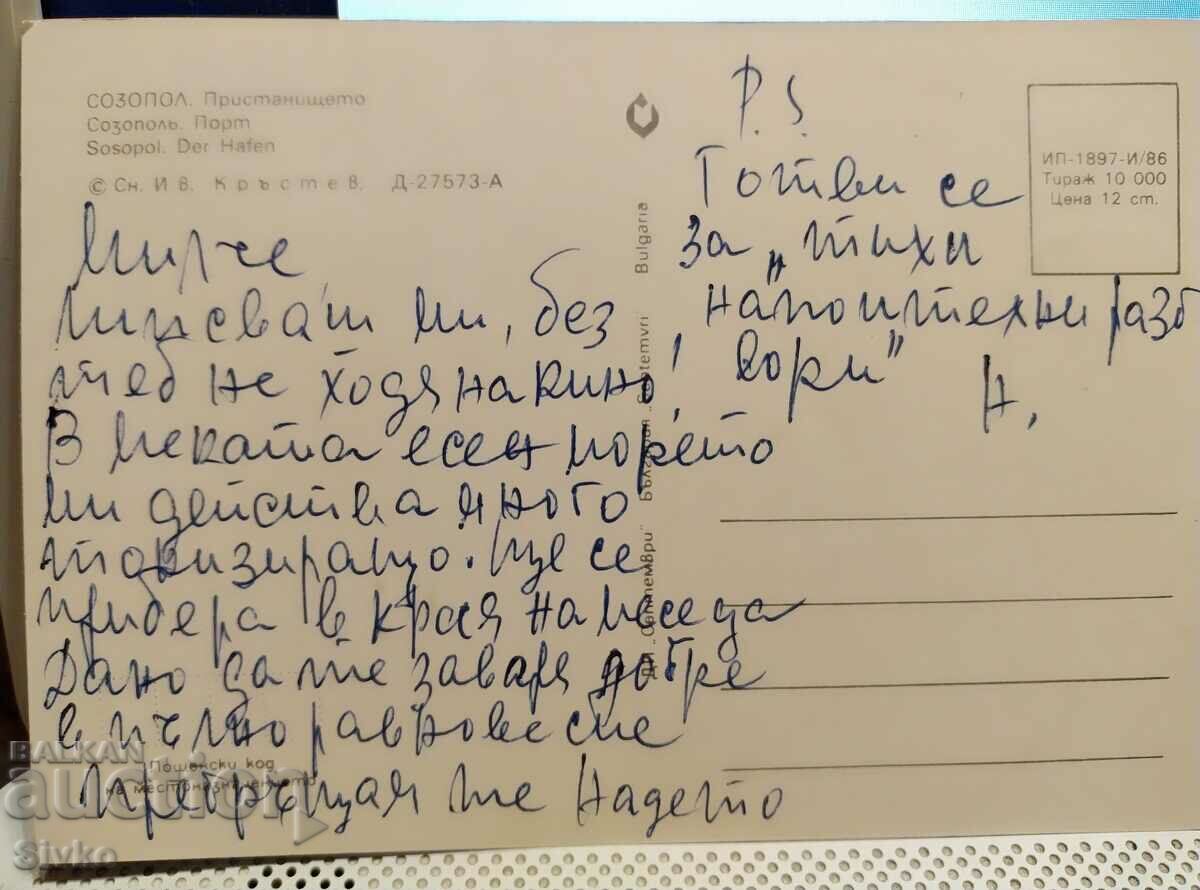 СОЗОПОЛ. Пристанището
Созополь. Порт
Sosopol. Der Hafen
© Сн. Ив. Кръстев. Д-27573-А
Мирче
Липсваш ми, без
теб не ходя на кино!
В меката есен морето
ми действа много
тонизиращо. Ще се
прибера в края на месеца
Дано да те заваря добре
в пълно равновесие
Прегръщам те Надето
P.S
Готви се
за „тихи
напоителни разго
вори"
Н.
ИП-1897-И/86
Тираж 10 000
Цена 12 ст.
ДП „Септември" България „Septemvri" Bulgaria
Пощенски код
на местоназначението
BALKAN
auction
Sivko